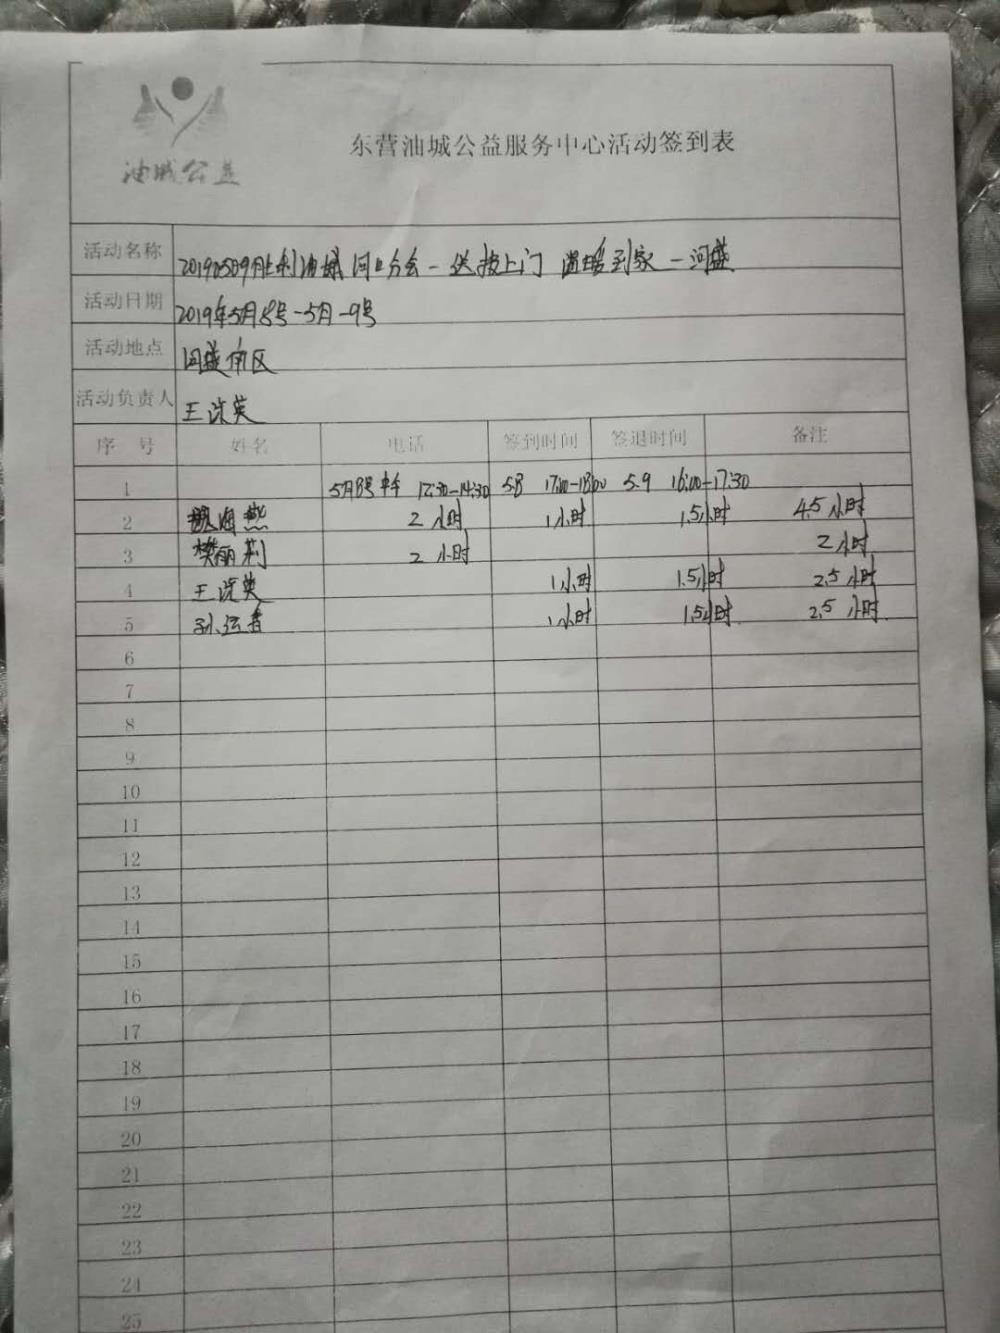 油城公益
东营油城公益服务中心活动签到表
活动名称 20190509胜利油城河口分会-送报上门 温暖到家-河盛
活动日期 2019年5月8号-5月-9号
活动地点 河盛南区
活动负责人 王英
序 号 姓名 电话 签到时间 签退时间 备注
1 5月8号中午 12:30-14:30 5.8 17:00-18:00 5.9 16:00-17:30
2 海燕 2小时 1小时 1.5小时 4.5小时
3 樊丽莉 2小时 2小时
4 王英 1小时 1.5小时 2.5小时
5 孙运青 1小时 1.5小时 2.5小时
6
7
8
9
10
11
12
13
14
15
16
17
18
19
20
21
22
23
24
25